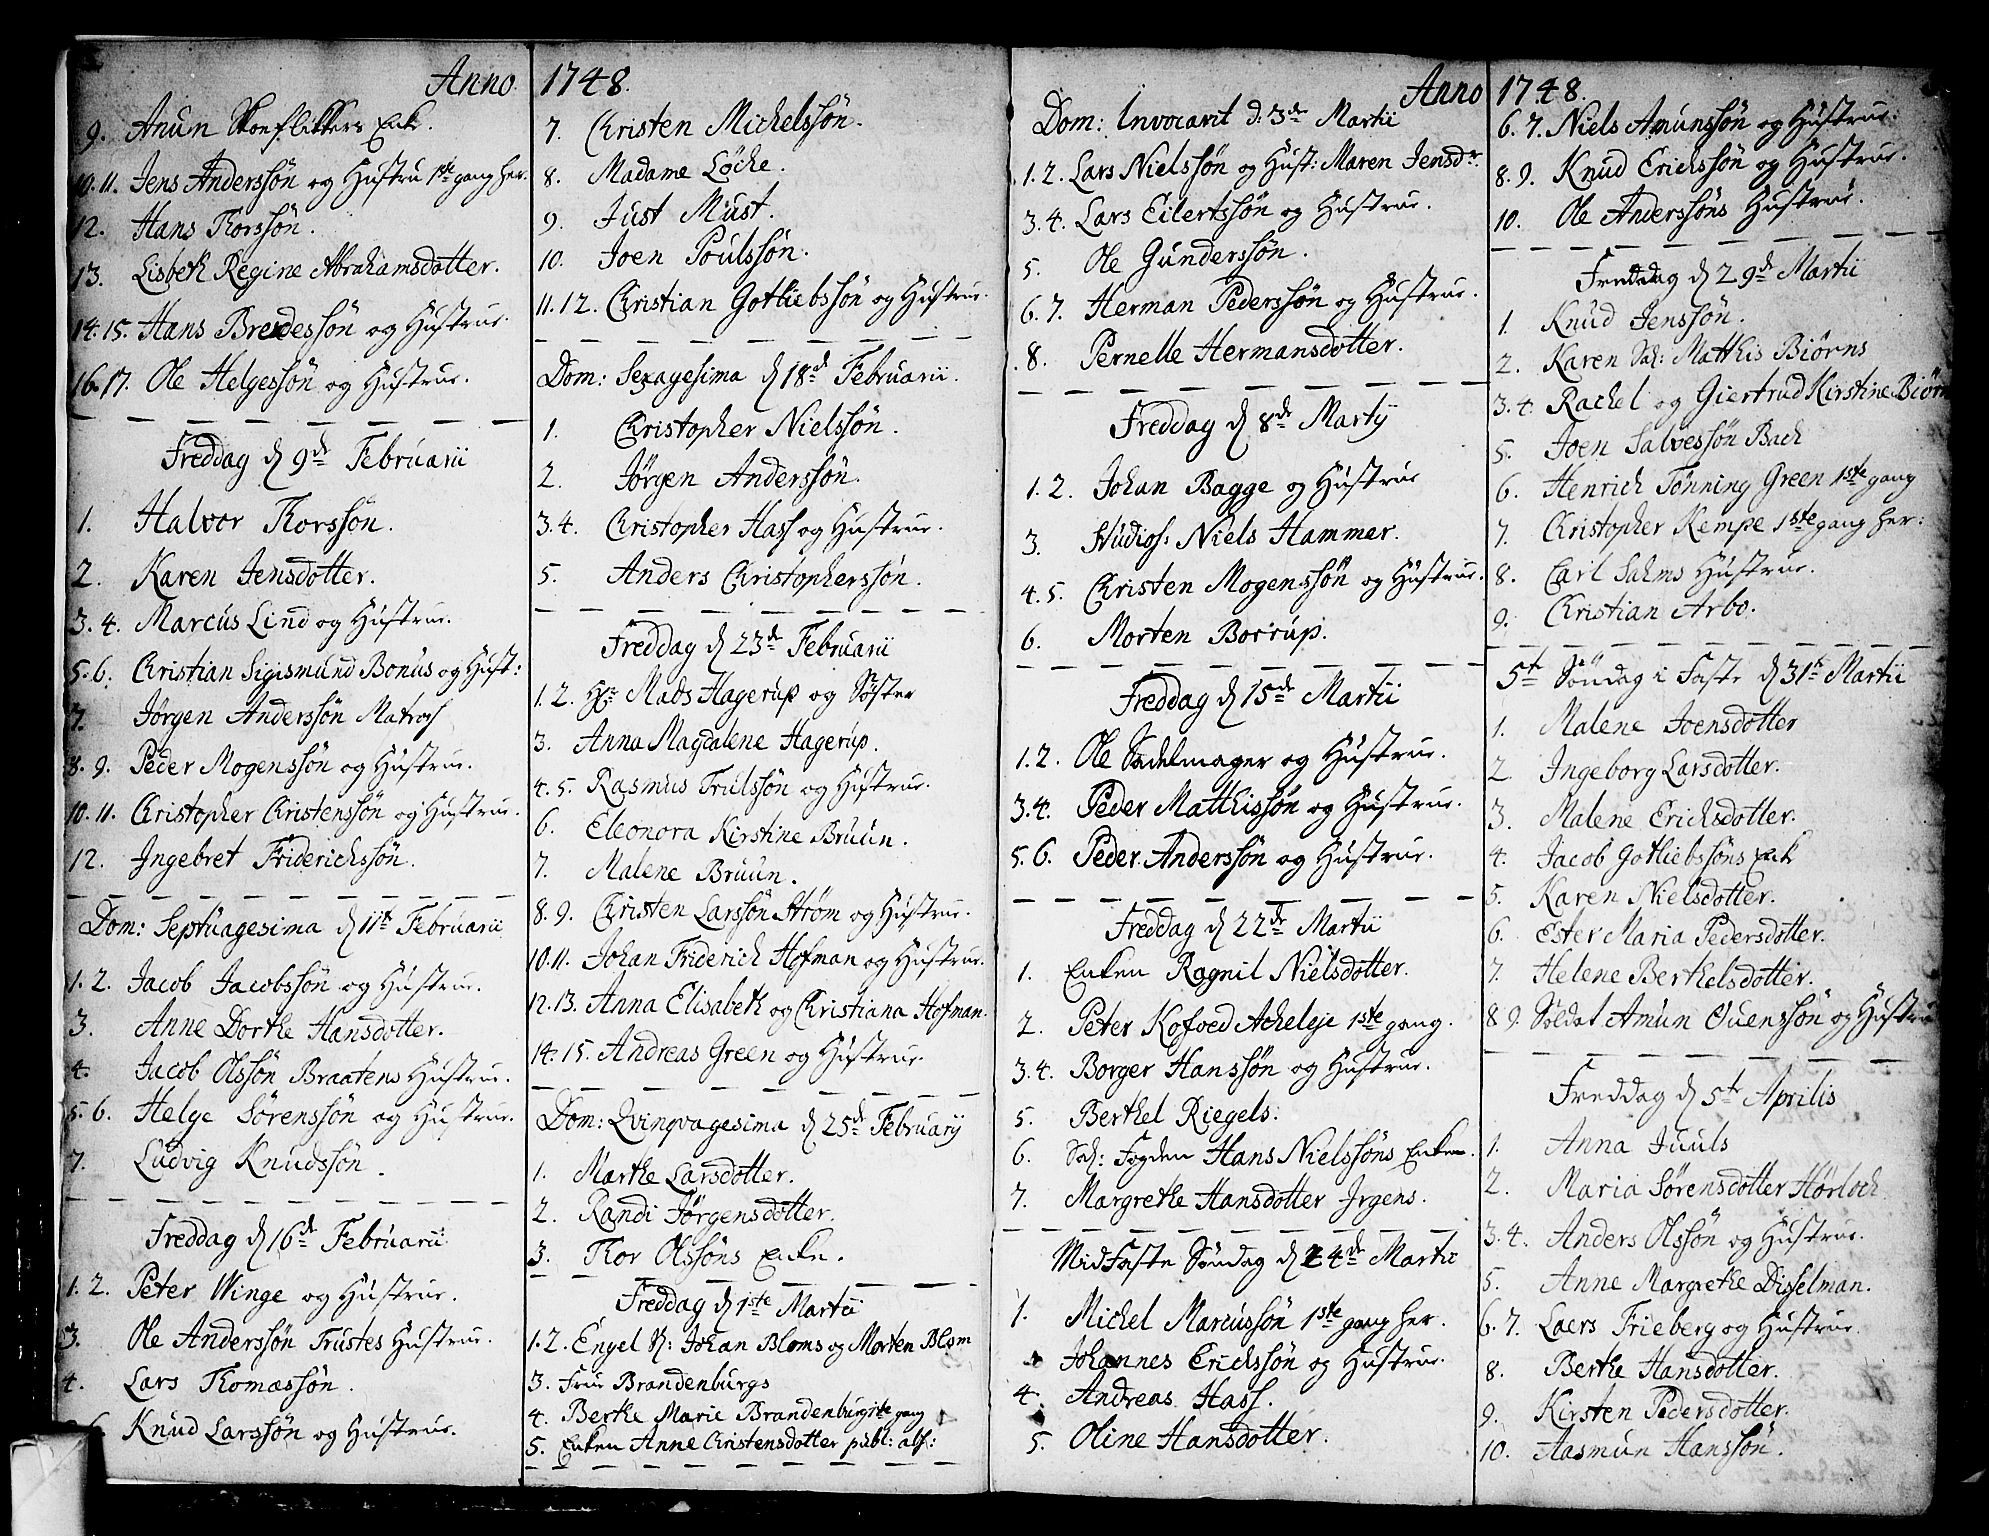 Anno 1748.
9. Anun Skoeflikkers Enke.
10. 11. Jens Anderssön og Hustru 1ste gang her.
12. Hans Thorssön.
13. Lisbeth Regine Abrahamsdotter.
14. 15. Hans Bredessön og Hustrue.
16. 17. Ole Helgessön og Hustrue.
Freddag d 9de Februarii
1. Halvor Thorssön.
2. Karen Jensdotter.
3. 4. Marcus Lind og Hustrue.
5. 6. Christian Sigismund Bonus og Hust:
7. Jörgen Anderssön Matros
8. 9. Peder Mogenssön og Hustrue.
10. 11. Christopher Christenssön og Hustrue.
12. Ingebret Friderichssön.
Dom: Septuagesima d 11te Februarii
1. 2. Jacob Jacobssön og Hustrue.
3. Anne Dorthe Hansdotter.
4. Jacob Olssön Braatens Hustrue.
5. 6. Helge Sörenssön og Hustrue.
7. Ludvig Knudssön.
Freddag d 16de Februarii
1. 2. Peter Winge og Hustrue.
3. Ole Anderssön Trustes Hustrue.
4. Lars Thomassön.
6. Knud Larssön og Hustrue.
7. Christen Michelssön.
8. Madame Löche.
9. Just Must.
10. Joen Poulssön.
11. 12. Christian Gotliebssön og Hustrue.
Dom: Sexagesima d 18de Februarii.
1. Christopher Nielssön.
2. Jörgen Anderssön.
3. 4. Christopher Hass og Hustrue.
5. Anders Christopherssön.
Freddag d 23de Februarii
1. 2. Hr: Mads Hagerup og Söster
3. Anna Magdalene Hagerup.
4. 5. Rasmus Trulssön og Hustrue.
6. Eleonora Kirstine Bruun.
7. Malene Bruun.
8. 9. Christen Larssön Ström og Hustrue.
10. 11. Johan Friderich Hofman og Hustrue.
12. 13. Anna Elisabeth og Christiana Hofman.
14. 15. Andreas Green og Hustrue.
Dom: Qvinqvagesima d 25de Februarij
1. Marthe Larsdotter.
2. Randi Jörgensdotter.
3. Thor Olssöns Enke.
Freddag d 1ste Martii
1. 2. Engel Johan Bloms og Morten Blom
3. Frue Brandenburgs
4. Berthe Marie Brandenburg 1ste gang
5. Enken Anne Christensdotter publ: abs:
Anno 1748.
Dom: Invocavit d. 3de Martii
1. 2. Lars Nielssön og Hust: Maren Jensdr.
3. 4. Lars Eilertssön og Hustrue.
5. Ole Gunderssön.
6. 7. Herman Pederssön og Hustrue.
8. Pernelle Hermansdotter.
Freddag d 8de Martij
1. 2. Johan Bagge og Hustrue
3. Studios: Niels Hammer.
4. 5. Christen Mogenssön og Hustrue.
6. Morten Borrup.
Freddag d 15de Martii
1. 2. Ole Sadelmager og Hustrue.
3. 4. Peder Matthissön og Hustrue.
5. 6. Peder Anderssön og Hustrue.
Freddag d 22de Martii
1. Enken Ragnil Nielsdotter.
2. Peter Kofoed Acheleje 1ste gang.
3. 4. Borger Hanssön og Hustrue.
5. Berthel Riegels.
6. Sal: Fogden Hans Nielssöns Enke.
7. Margrethe Hansdotter Irgens.
MidFaste Söndag d 24de Martii
1. Michel Marcussön 1ste gang her.
Johannes Erichssön og Hustrue.
4. Andreas Hass.
5. Oline Hansdotter.
6. 7. Niels Amunssön og Hustrue.
8. 9. Knud Erichssön og Hustrue.
10. Ole Anderssöns Hustrue.
Freddag d 29de Martii
1. Knud Jenssön.
2. Karen Sal: Matthis Biörns
3. 4. Rachel og Giertrud Kirstine Biörn
5. Joen Salvessön Bach
6. Henrich Tönning Green 1ste gang
7. Christopher Kempe 1ste gang her:
8. Carl Sahms Hustrue.
9. Christian Arbo.
5te Söndag i Faste d 31te Martii
1. Malene Joensdotter
2. Ingeborg Larsdotter.
3. Malene Erichsdotter.
4. Jacob Gotliebssöns Enke
5. Karen Nielsdotter.
6. Ester Maria Pedersdotter.
7. Helene Berthelsdotter.
8 9. Soldat Amun Ouenssön og Hustru
Freddag d 5te Aprilis
1. Anna Juuls
2. Maria Sörensdotter Hörloch
3. 4. Anders Olssön og Hustrue.
5. Anne Margrethe Disselman.
6. 7. Laers Frieberg og Hustrue.
8. Berthe Hansdotter.
9. Kirsten Pedersdotter.
10. Aasmun Hanssön.